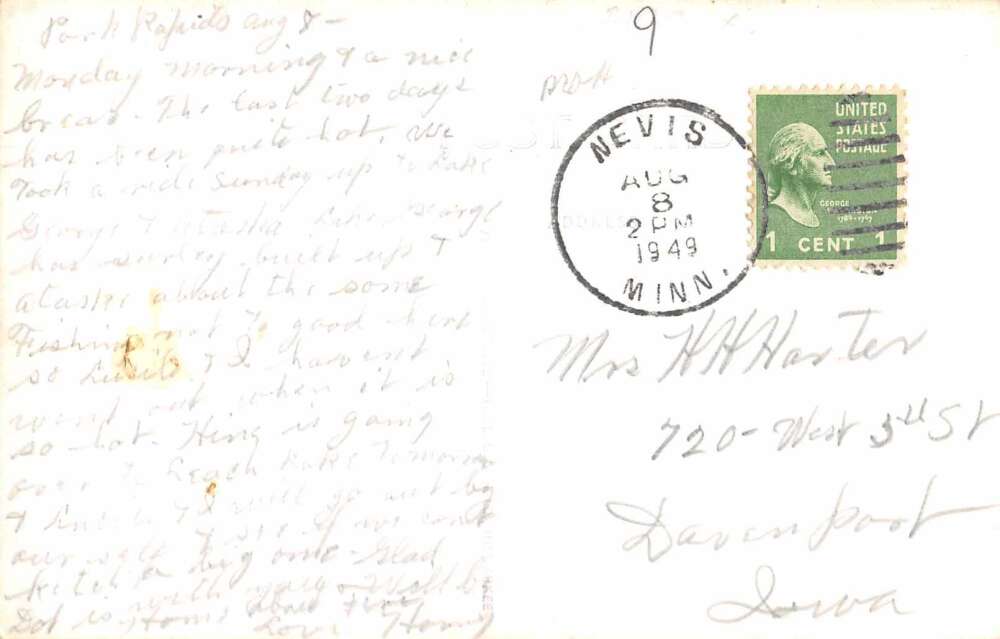 Park Rapids Aug 8-
Monday Morning & a nice
breas. The last two days
has been quite hot, We
Took a ride Sunday up to Lake
George & Itaska Lake George
has surley built up &
ataska about the same
Fishing not to good here
so Lucile & I havent
went out when it is
so hot. King is going
over to Leach Lake Tomorrow
& I will go out by
our self & see if we cant
ketch a big one - Glad
Dot is with you. Will be
Home about
Love
9
POST CARD
ADDRESS
NEVIS
AUG
8
2 PM
1949
MINN.
UNITED
STATES
POSTAGE
GEORGE
WASHINGTON
1789-1797
1 CENT 1
Mrs H H Harter
720 - West 5th St
Davenport
Iowa